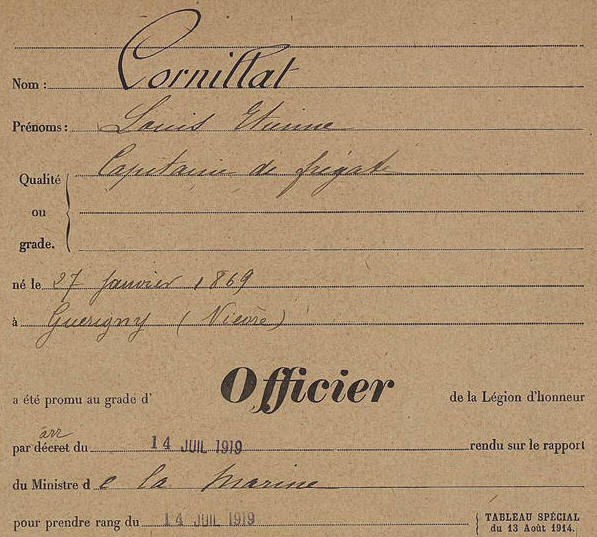 Nom : Cornillat
Prénoms : Louis Etienne
Qualité Capitaine de frégate
ou
grade.
né le 27 Janvier 1869
à Guérigny (Nièvre)
a été promu au grade d' Officier de la Légion d'honneur
arr
par décret du 14 JUIL 1919 rendu sur le rapport
du Ministre de la Marine
pour prendre rang du 14 JUIL 1919 TABLEAU SPÉCIAL
du 13 Août 1914.